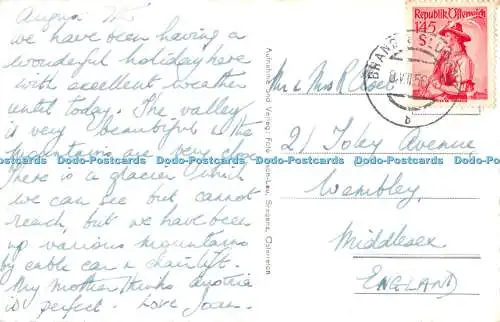 August
we have been having a
wonderful holiday here
with excellent weather
until today. The valley
is very beautiful & the
mountains are very close
There is a glacier which
we can see but cannot
reach, but we have been
up various mountains
by cable car & chairlift.
My Mother thinks Austria
is perfect. Love Joan.
Mr & Mrs P.
21 Toley Avenue,
Wembley,
Middlesex
ENGLAND
Republik Österreich
1.45
BRAND
b
Aufnahme und Verlag Foto Bregenz, Österreich
Dodo-Postcards Dodo-Postcards Dodo-Postcards Dodo-Postcards Dodo-Postcards